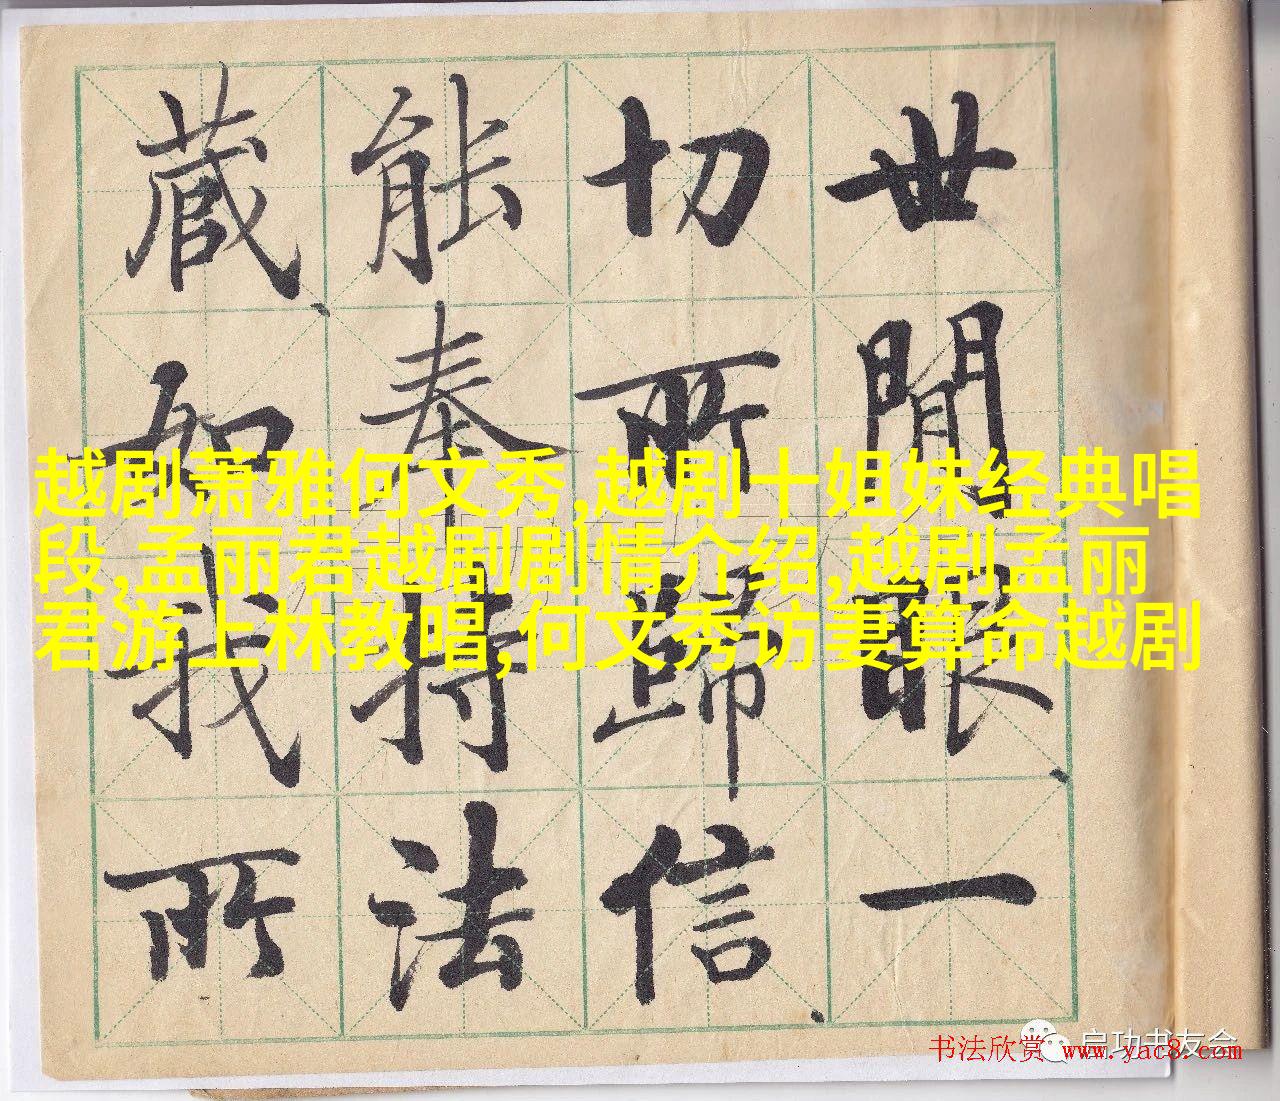 世間眼一
切所歸信
能奉持法
藏如我所
越剧萧雅何文秀,越剧十姐妹经典唱
段,孟丽君越剧剧情介绍,越剧孟丽
君游上林教唱,何文秀访妻算命越剧
启功书友会
书法欣赏 www.yac8.com